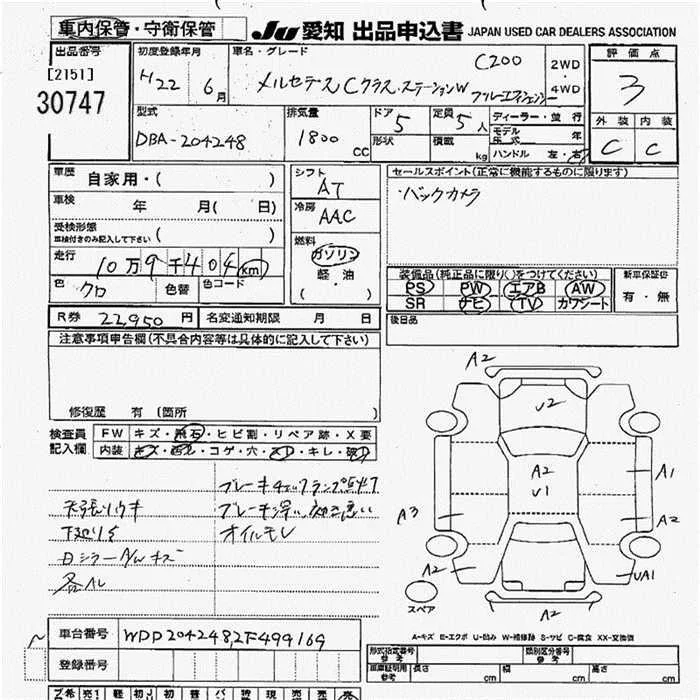 車内保管・守衛保管
JU 愛知 出品申込書 JAPAN USED CAR DEALERS ASSOCIATION
出品番号
[2151]
30747
初度登録年月
H22年 6月
車名・グレード
C200
メルセデス Cクラス.ステーションW
2WD
・
4WD
評価点
3
外装 内装
C C
型式
DBA-204248
排気量
1800 CC
ドア
5
形状
定員
5人
積載
kg
ディーラー・並行
モデル 年
ハンドル 左・右
車歴
自家用・( )
車検
年 月( 日)
受検形態
車検付きのみ記入して下さい ( )
走行
10万9千404km
色
クロ
色替
色コード
シフト
AT
冷房
AAC
燃料
ガソリン
軽・油
( )
セールスポイント(正常に機能するものに限ります)
・バックカメラ
装備品(純正品に限り○をつけてください)
PS PW エアB AW
SR ナビ TV カワシート
新車保証書
有・無
R券 22,950円
名変通知期限 月 日
後日品
注意事項申告欄(不具合内容等は具体的に記入して下さい)
修復歴 有 (箇所 )
検査員
記入欄
FW キズ・飛石・ヒビ割・リペア跡・X要
内装 キズ・コゲ・穴・キレ
天張りウキ
下廻り
各AL
オイルモレ
A2
U2
A2
U1
A3
A1
A2
A2
UA1
A2
スペア
A-キズ E-エクボ U-凹み W-補修跡 S-サビ C-腐食 XX-交換済
車台番号 WDD2042482F499169
登録番号
形式指定番号
参考
類別区分番号
参考
長さ cm
幅 cm
高さ cm